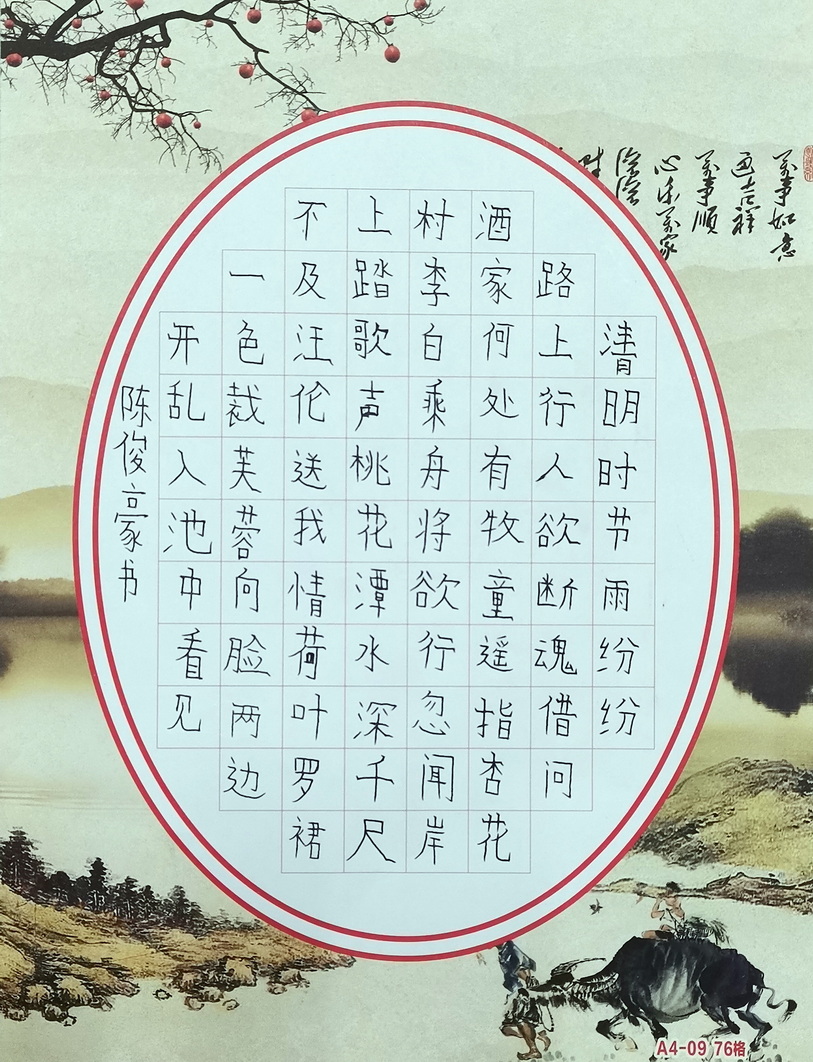 萬事如意
萬事順
清明时节雨纷纷
路上行人欲断魂借问
酒家何处有牧童遥指杏花
村李白乘舟将欲行忽闻岸
上踏歌声桃花潭水深千尺
不及汪伦送我情荷叶罗裙
一色裁芙蓉向脸两边
开乱入池中看见
陈俊豪书
A4-09 76格